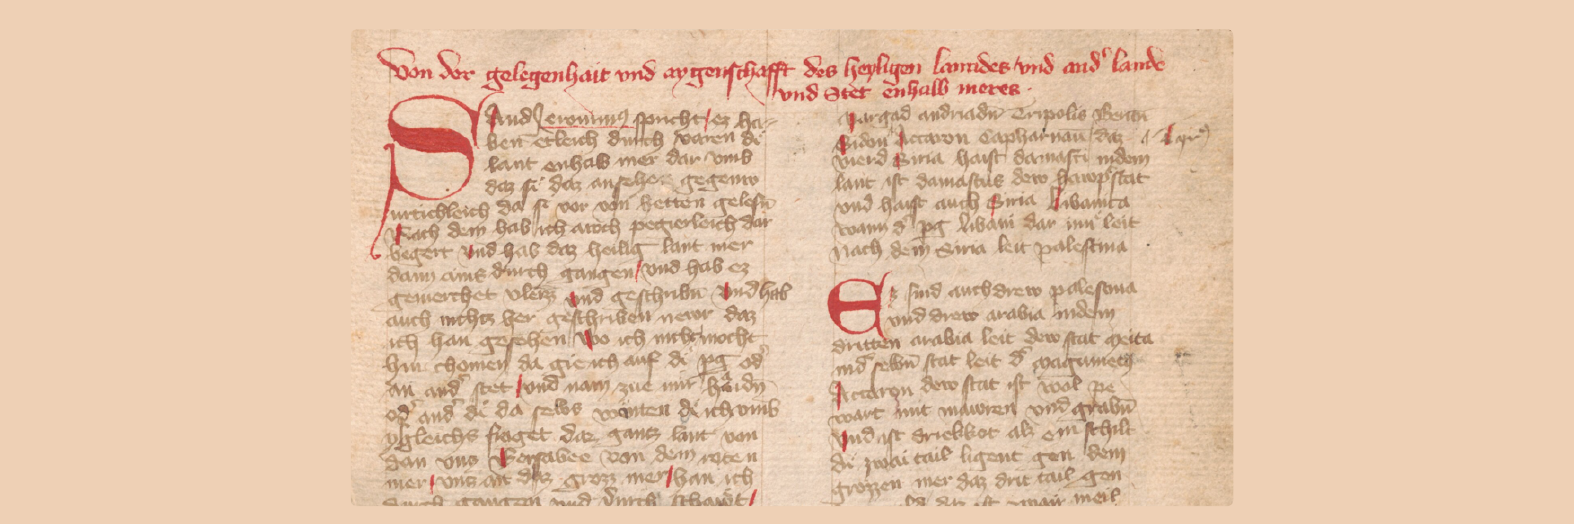 Von der gelegenhait vnd aygenschafft des heyligen lanndes vnd and' lande
vnd Stet enhalb meres
Sand Jeronimus spricht ez ha=
ben etleich durch varen di
lant enhalb mer dar vmb
daz si daz ansehen gegenw
urtichleich daz si vor von hetten gelesn
Nach dem hab ich auch pegierleich dar
begert vnd hab daz heilig lant mer
dann ains durch gangen vnd hab ez
gemerchet vleizz vnd geschribn vnd hab
auch nichtz her geschriben newr daz
ich han gesehen wo ich nicht mocht
hin chomen da gie ich auf di pg od'
an and' stet vnd nam zue mir haidn
od' and' di da selbs wonten di ich vmb
ygleichs fraget daz gantz lant von
dan vns Bersabee von dem roten
mer vns an daz grozz mer han ich
durch gangen vnd durch schawt
Margad andriadn Tripolis Berut
Sidon Accaron Capharnau daz
vierd Siria haist damasci in dem
lant ist damascus dew hawpstat
vnd haist auch Siria libanica
wann d' pg libani dar inn leit
nach dem Siria leit palestina
Ez sind auch drew palestina
vnd drew arabia in dem
dritten arabia leit dew stat
in d' selbn stat leit d' Magumeth
Accaron dew stat ist wol pe
wart mit mawren vnd grabn
vnd ist driekkot als ein schilt
di zwai tail ligent gen dem
grozzen mer daz drit tail gen